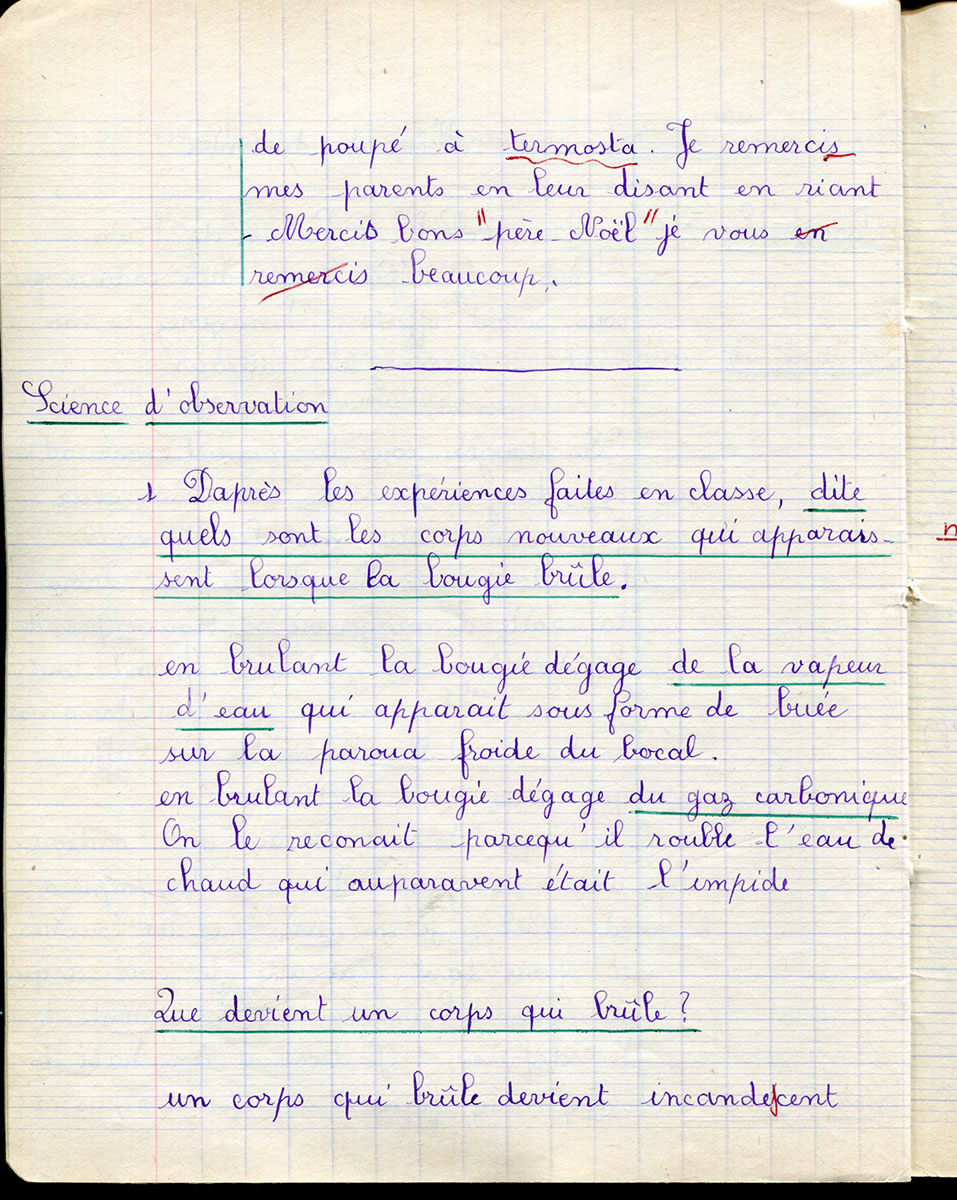 de poupé à termosta. Je remercis
mes parents en leur disant en riant
- Mercis bons "père Noël" je vous en
remercis beaucoup.
Science d'observation
1 Daprès les expériences faites en classe, dite
quels sont les corps nouveaux qui apparais-
sent lorsque la bougie brûle.
en brulant la bougie dégage de la vapeur
d'eau qui apparait sous forme de buée
sur la paroua froide du bocal.
en brulant la bougie dégage du gaz carbonique
On le reconait parcequ'il rouble l'eau de
chaud qui auparavent était l'impide
Que devient un corps qui brûle ?
un corps qui brûle devient incandescent